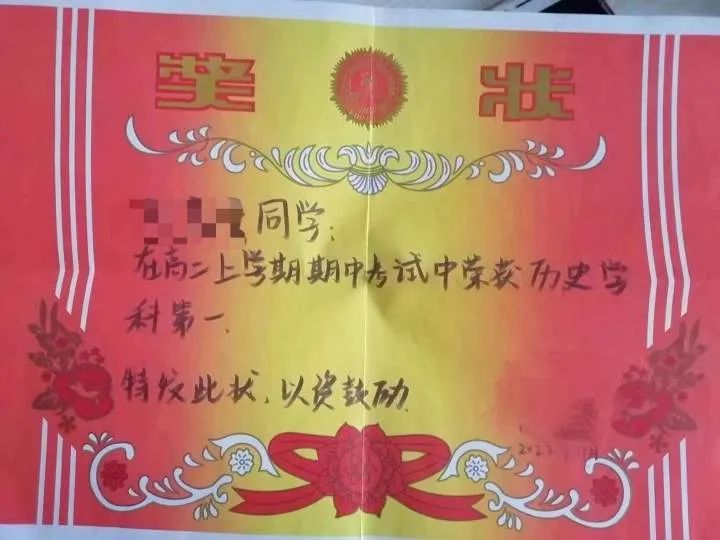 奖 状
同学：
在高二上学期期中考试中荣获历史学
科第一.
特发此状，以资鼓励.